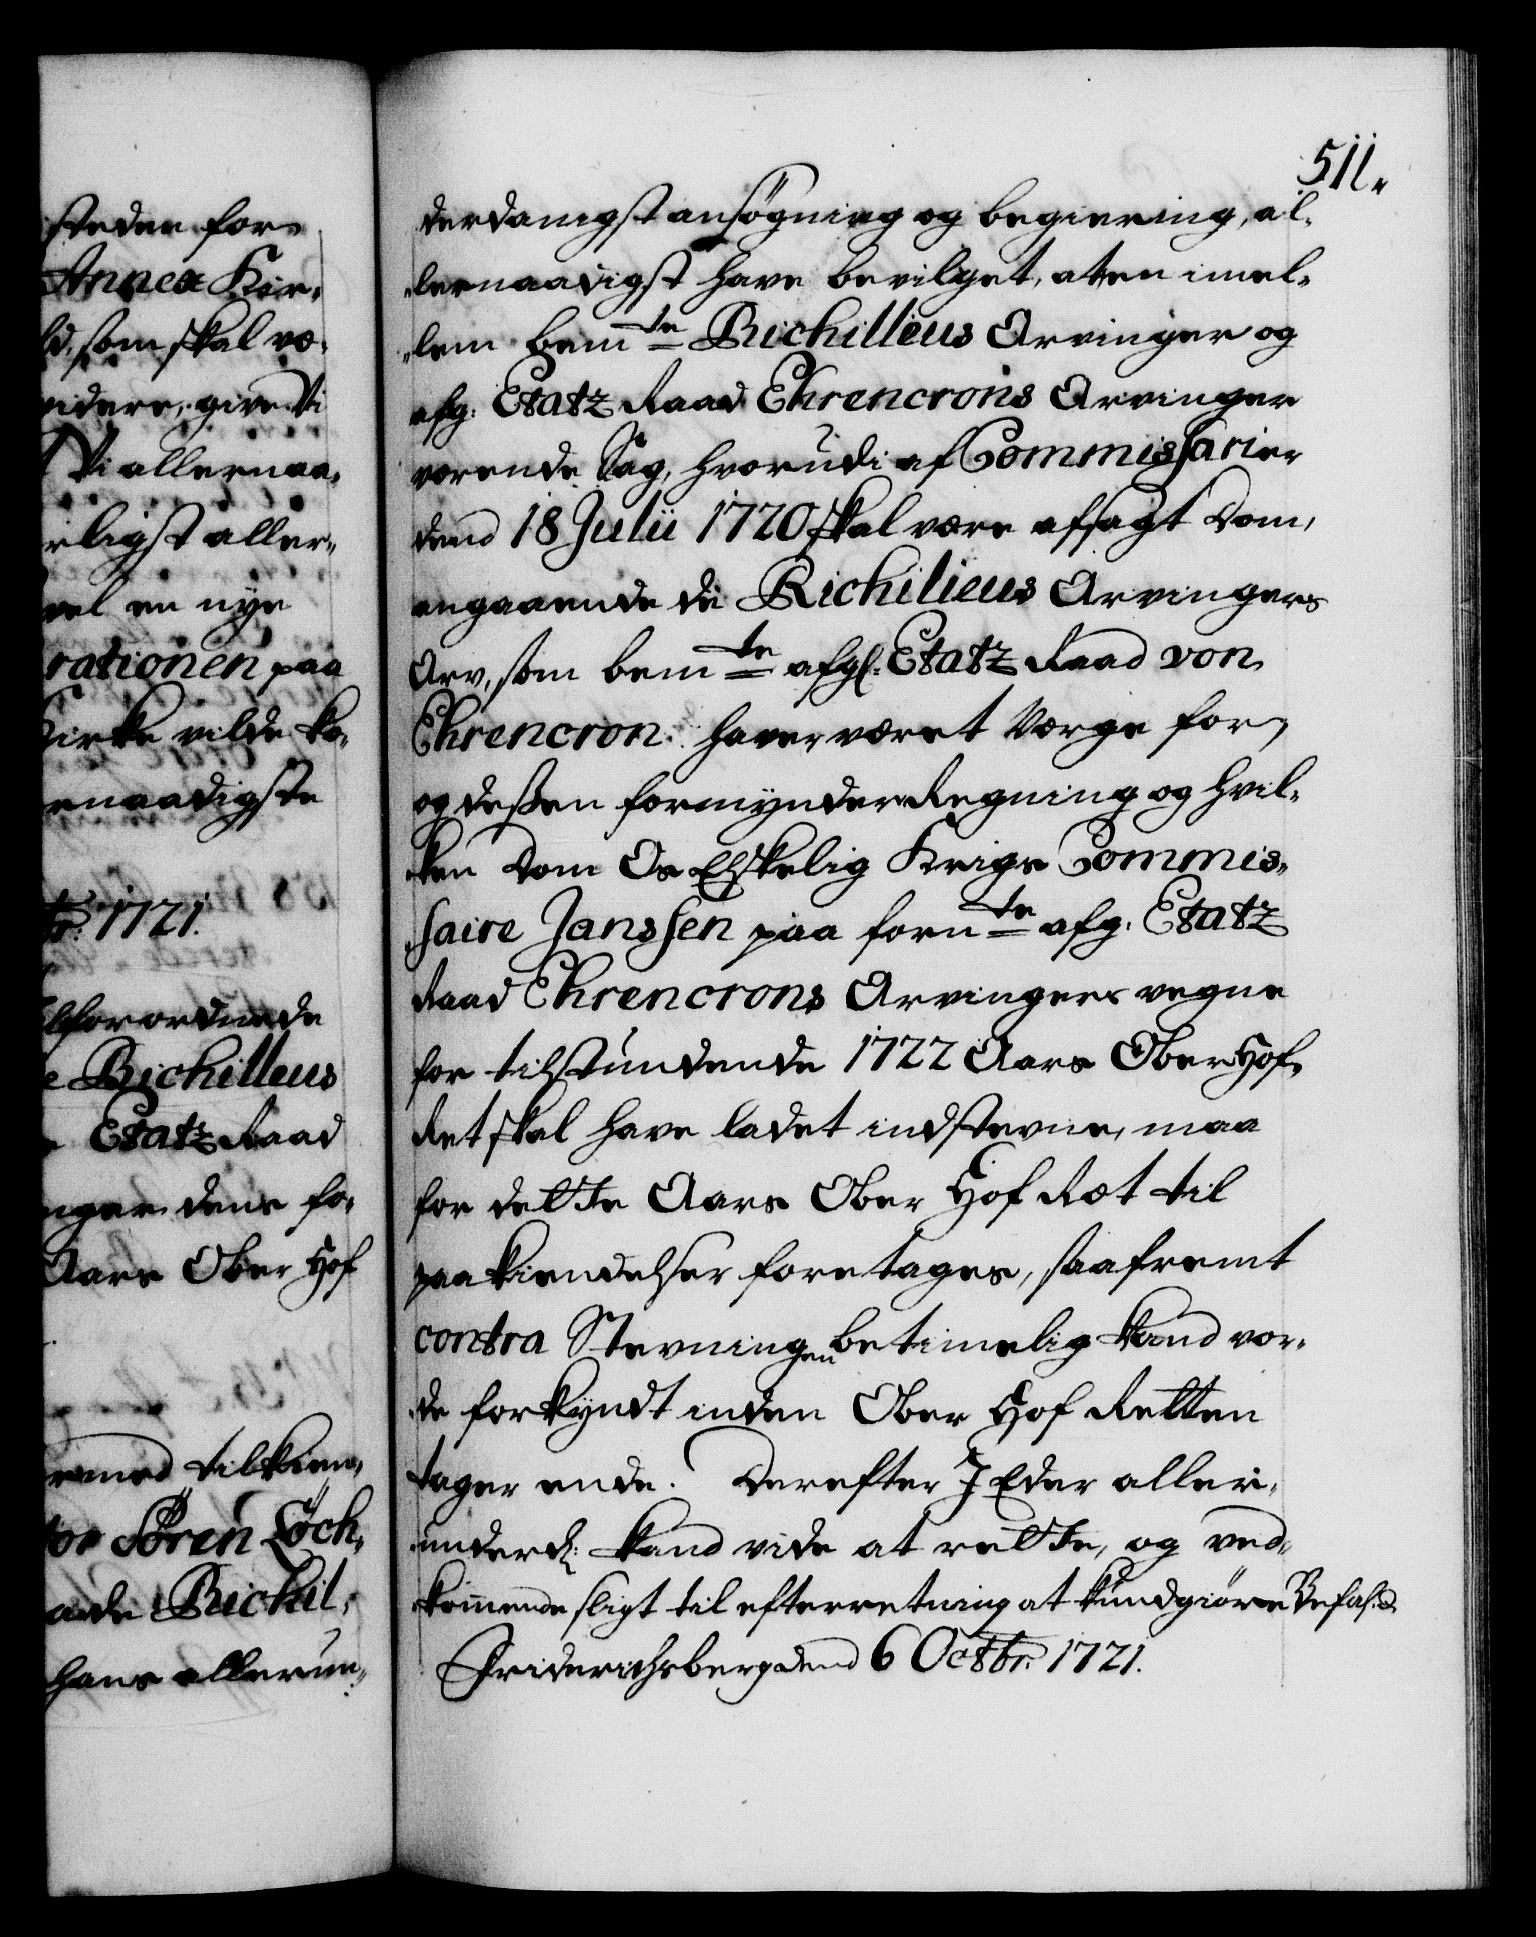 steden for¬
Annex Kir¬
ld, som skal væ¬
videre, give Vi
Vi allernaa¬
rligst aller¬
vel en nye
rationen paa
Kirke vilde ko¬
ernaadigste
br: 1721.
lforordnede
e Richilleus
Etatz Raad
nger dens fo¬
Aars Ober Hof
ermed tilkien¬
tor Søren Löch¬
ande Richil¬
hans allerun¬
511.
derdanigst ansøgning og begiering, al¬
lernaadigst have bevilget, at en imel¬
lem bemte Richilleus Arvinger og
afg: Etatz Raad Ehrencrons Arvinger
værende Sag, hvorudi af Commissarier
dend 18 Julii 1720 skal være afsagt Dom,
angaaende de Richilieus Arvingers
Arv, som bemte afgl: Etatz Raad von
Ehrencron haver været Værge for,
og deßen formynder Regning og hvil¬
ken Dom Os Elskelig Krigs Commis¬
saire Janssen paa fornte afg: Etatz
Raad Ehrencrons Arvingers vegne
for tilstundende 1722 Aars Ober Hof¬
Ret skal have ladet indstevne, maa
for dette Aars Ober Hof Ræt til
paakiendelser foretages, saafremt
contra Stevningen betimelig kand vor¬
de forkyndt inden Ober Hof Retten
tager ende. Derefter I Eder aller¬
underd: kand vide at rette, og ved¬
kommende sligt til efterretning at kundgiøre Befal: d.
Friderichsberg dend 6 Octbr: 1721.